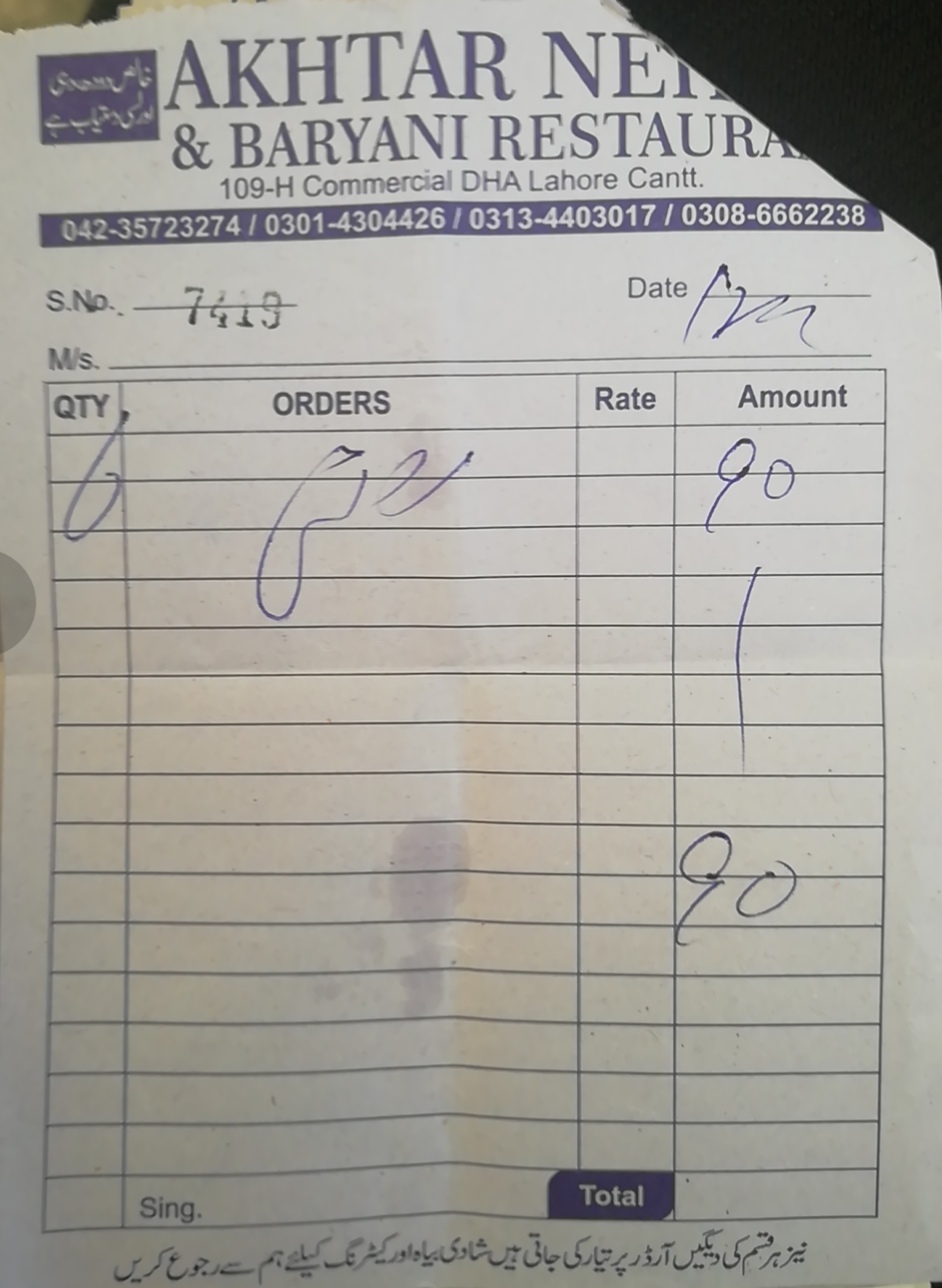 خالص دودھ دہی
اور لسی دستیاب ہے
AKHTAR
& BARYANI
109-H Commercial DHA Lahore Cantt.
042-35723274 / 0301-4304426 / 0313-4403017 / 0308-6662238
S.No. 7419
Date
M/s.
QTY ORDERS Rate Amount
6 90
90
Sing. Total
نیز ہر قسم کی دیگیں آرڈر پر تیار کی جاتی ہیں شادی بیاہ اور کیٹرنگ کیلئے ہم سے رجوع کریں